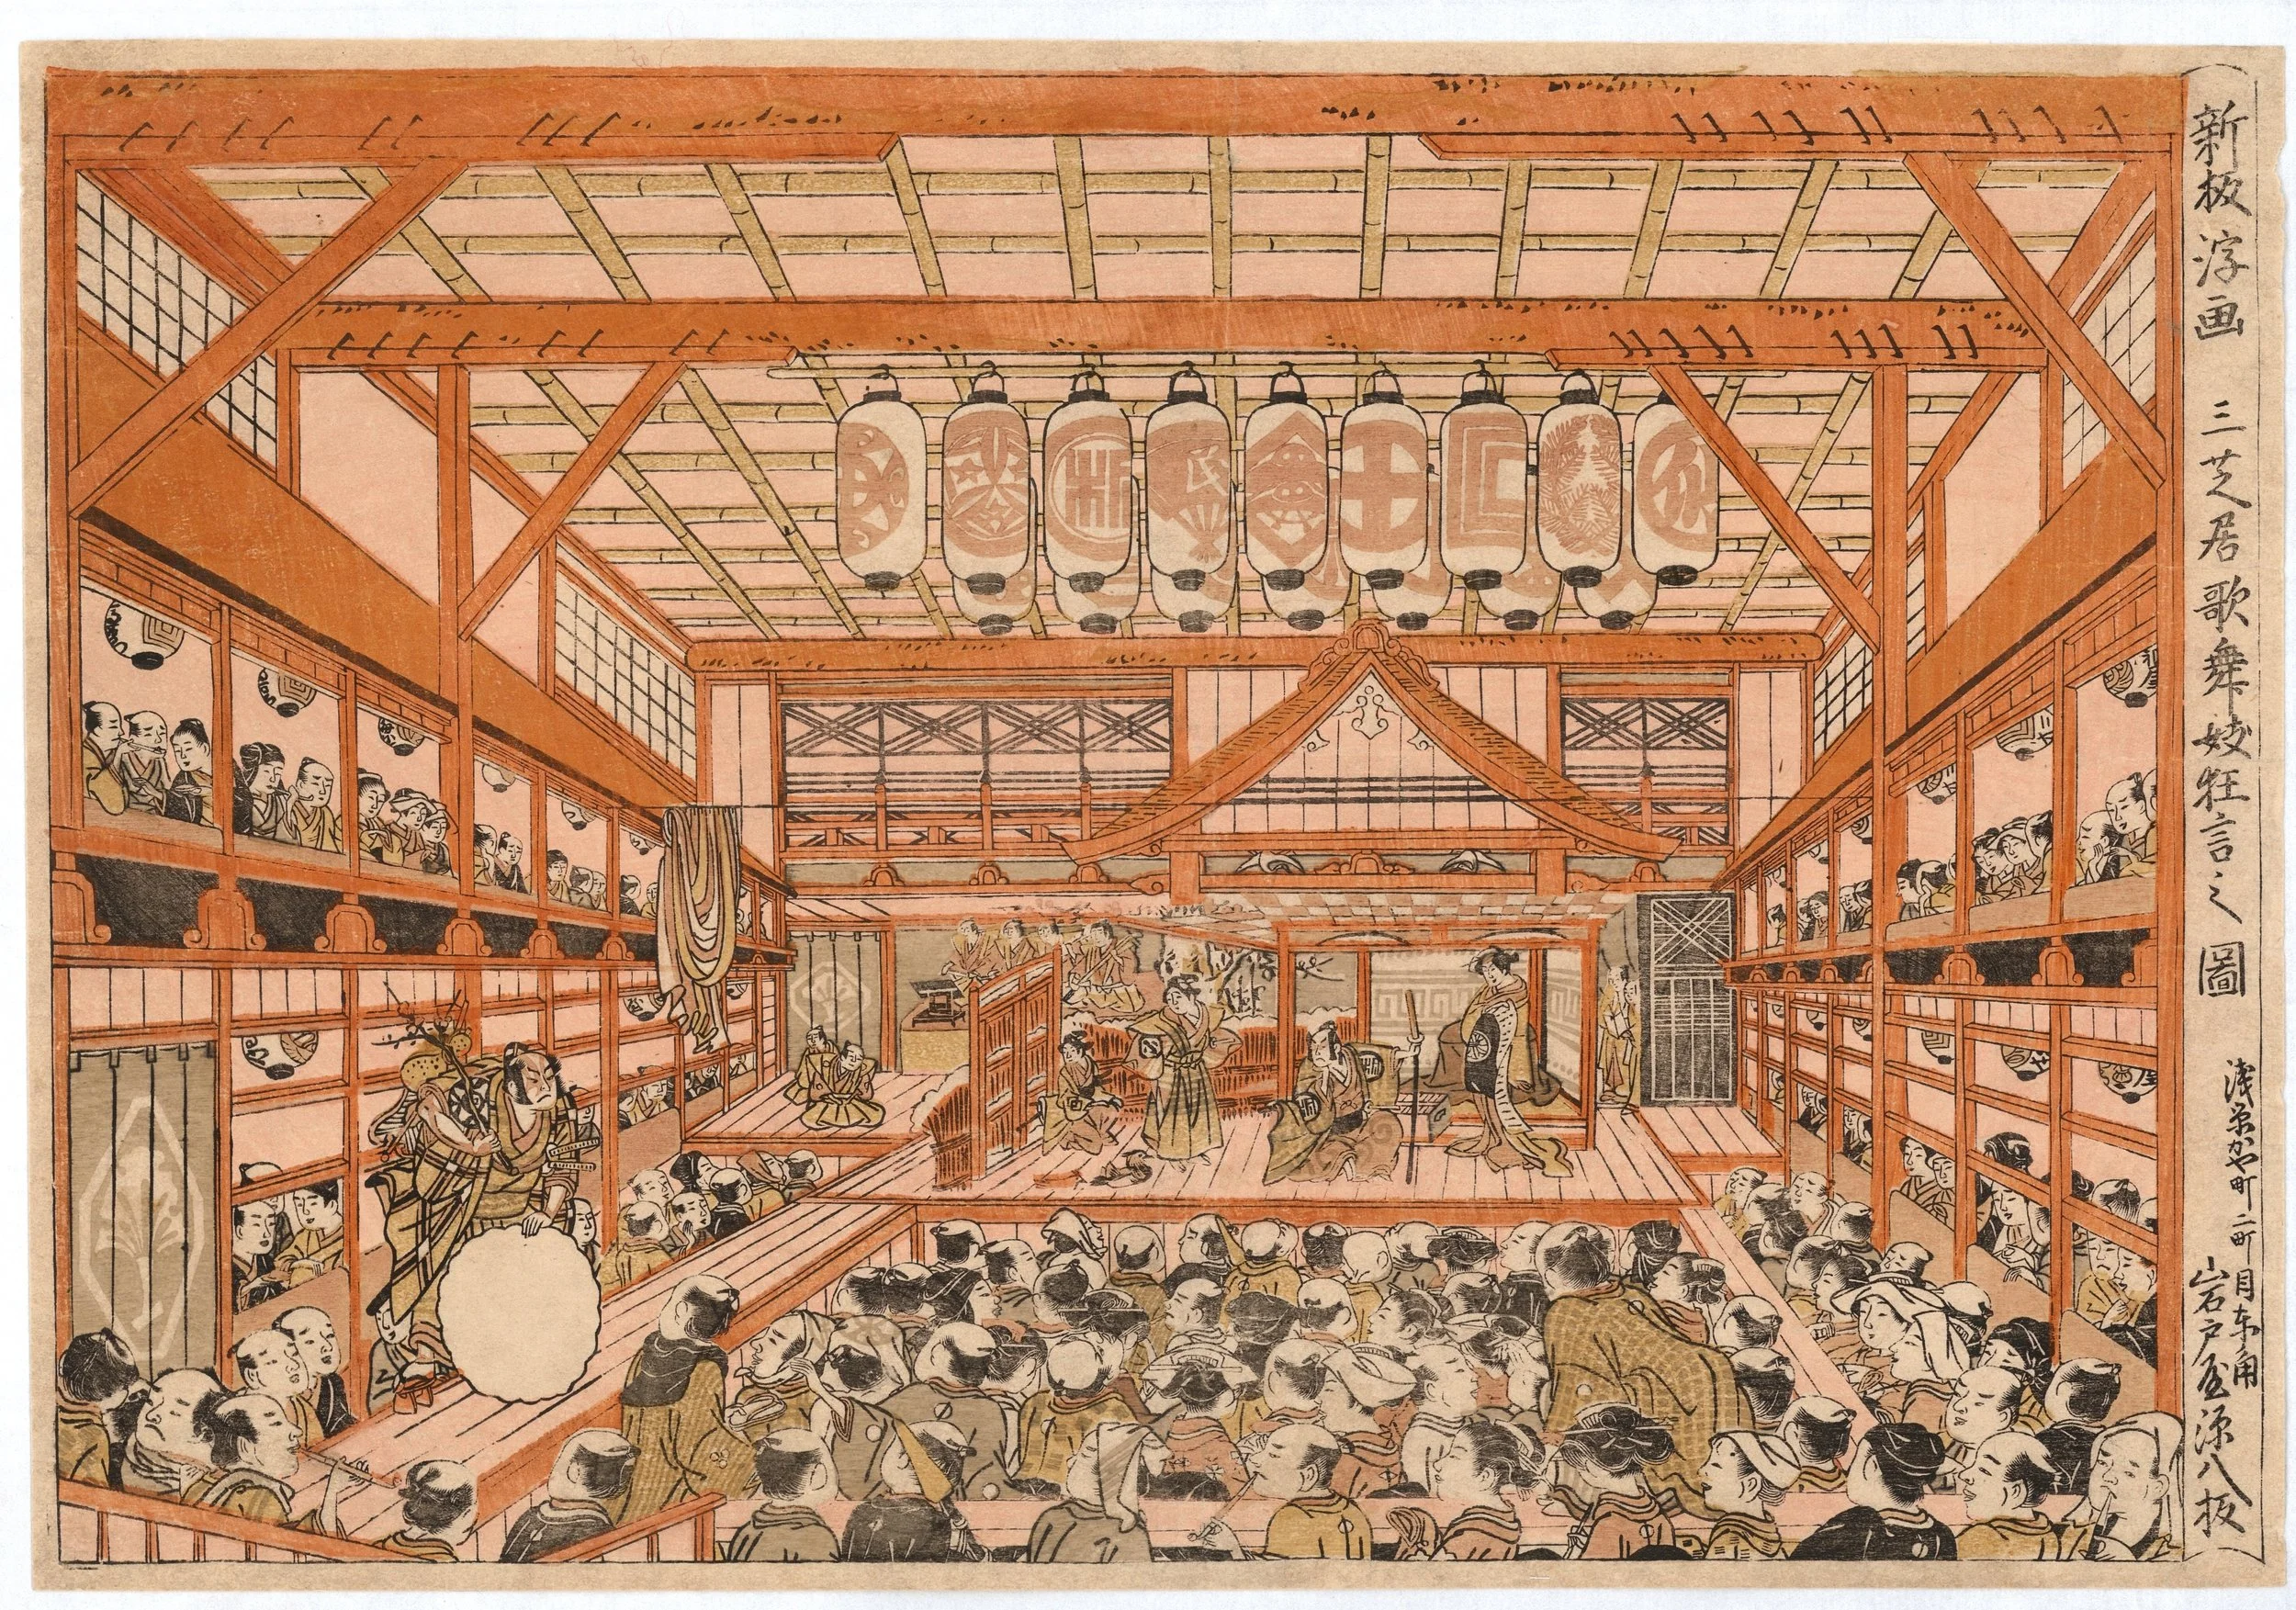 新板浮画 三芝居歌舞妓狂言之圖
浅草かや町二町目東角
岩戸屋源八板